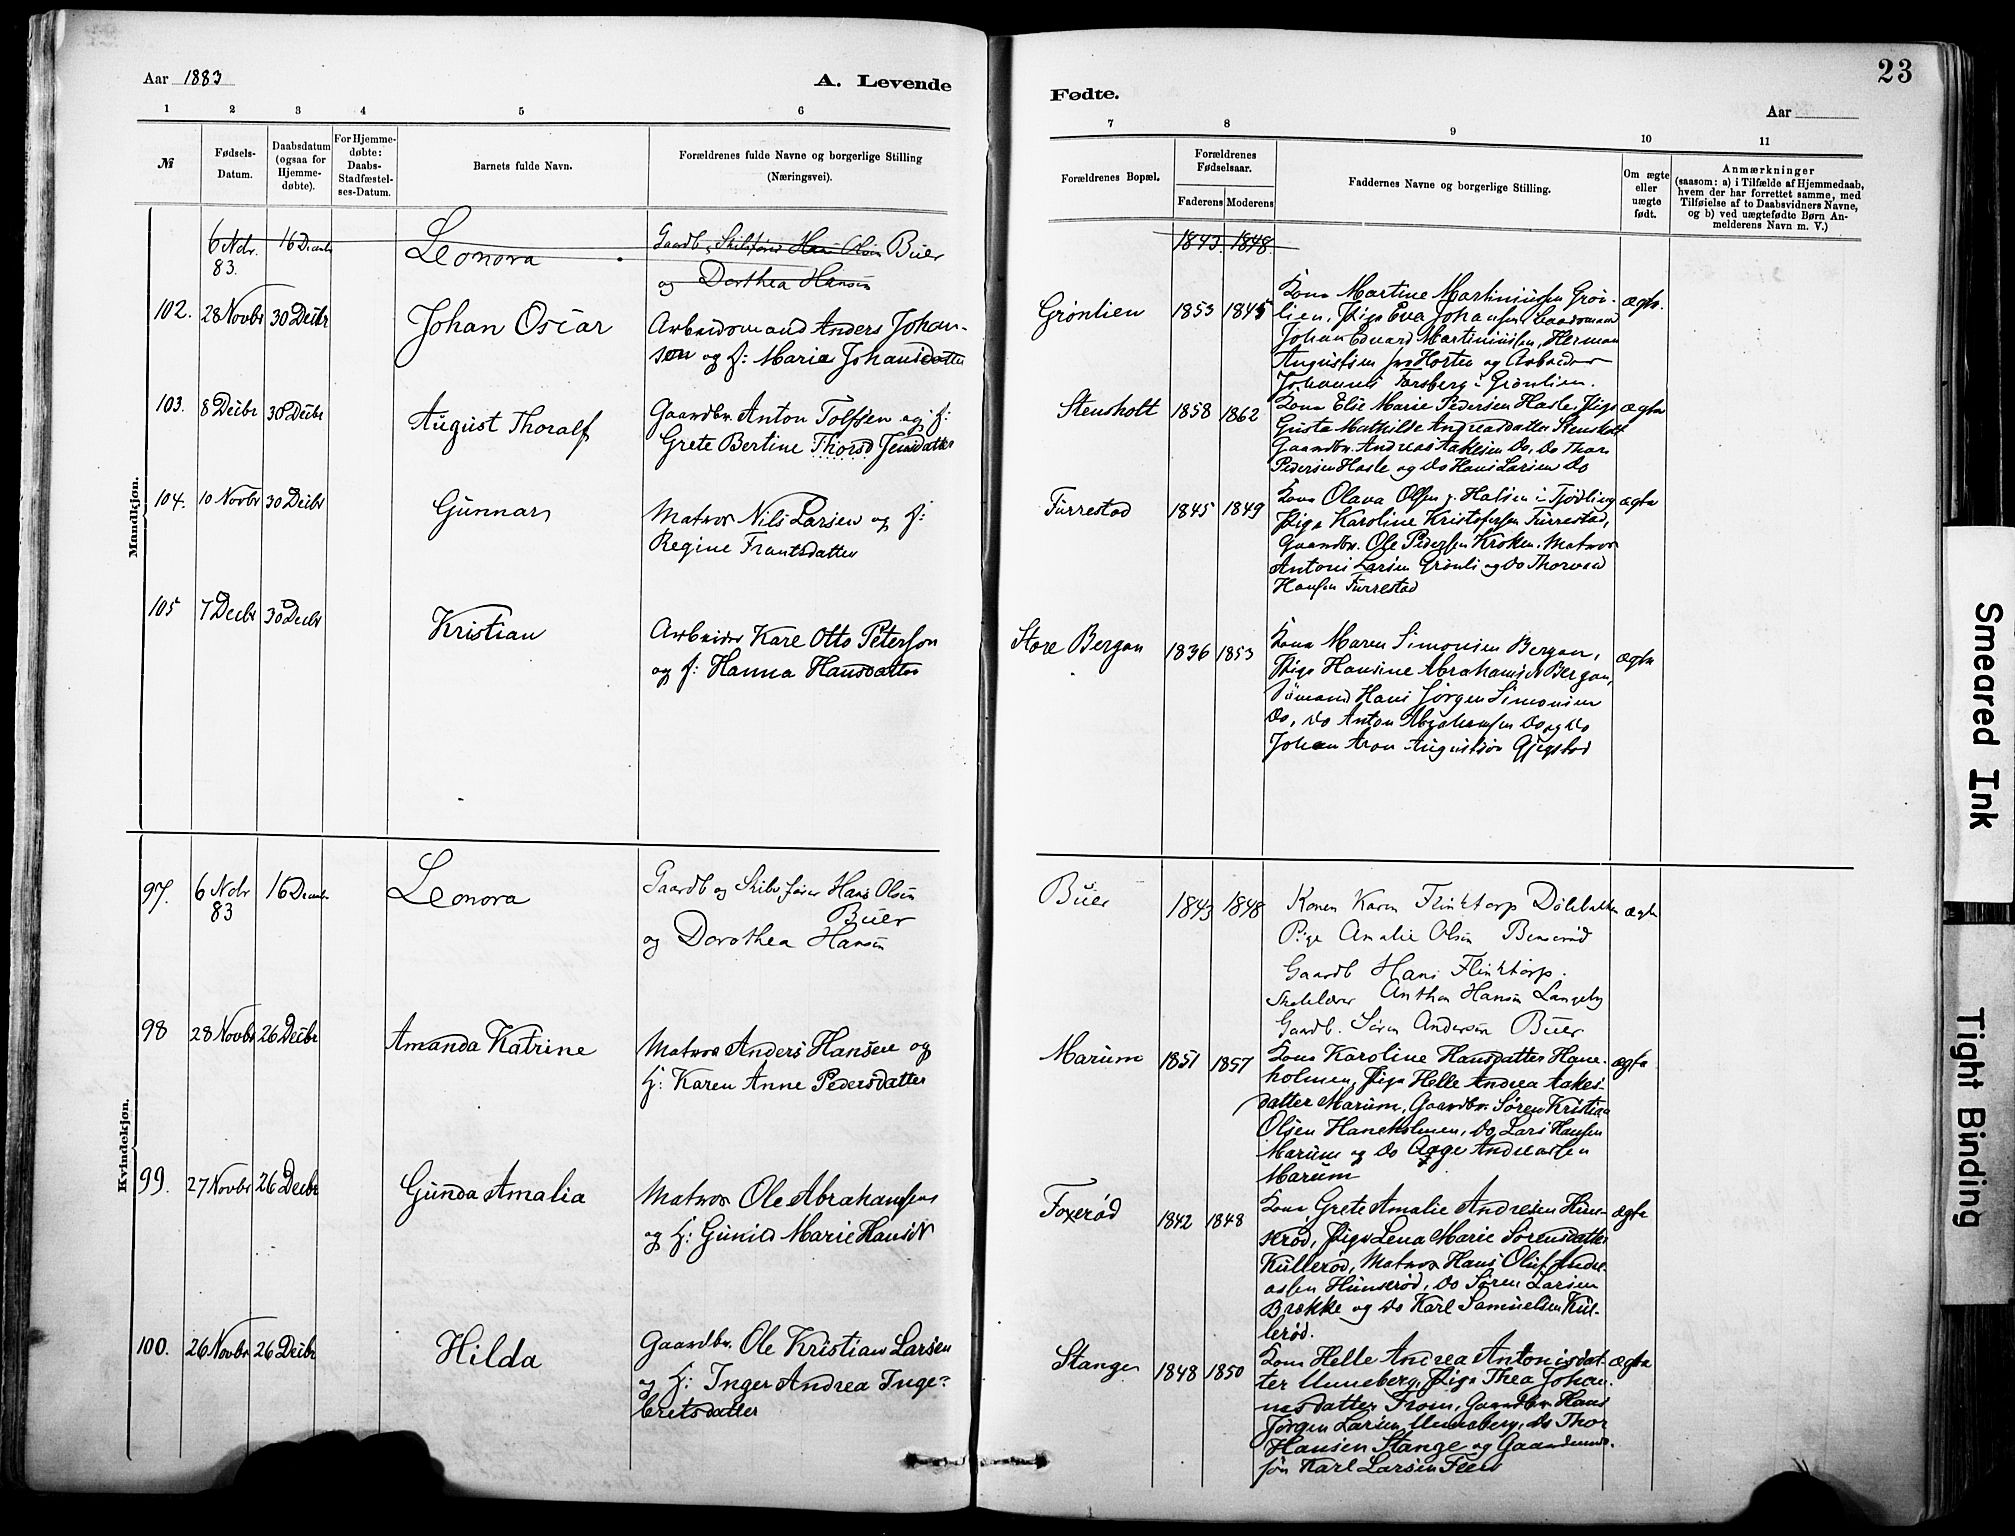 Aar 1883
A. Levende
1 2 3 4 5 6
№
Fødsels-
Datum.
Daabsdatum
(ogsaa for
Hjemme-
døbte).
For Hjemme-
døbte:
Daabs-
Stadfæstel-
ses-Datum.
Barnets fulde Navn.
Forældrenes fulde Navne og borgerlige Stilling
(Næringsvei).
Mandkjøn.
6 Nobr. 83. 16 Decembr Leonora Gaardb. Skibsfører Hans Olsen Büer
og Dorthea Hansen
102. 28 Novbr 30 Decbr Johan Oscar Arbeidsmand Anders Johan-
son og H: Marie Johansdatter
103. 8 Decbr 30 Decbr August Thoralf Gaardbr. Anton Tolfsen og H:
Grete Bertine Thorsd Jensdatter
104. 10 Novbr 30 Decbr Gunnar Matros Nils Larsen og H:
Regine Frantsdatter
105 7 Decbr 30 Decbr Kristian Arbeider Karl Otto Peterson
og H: Hanna Hansdatter
Kvindekjøn.
97. 6 Nobr 83 16 Decembr Leonora Gaardb og Skibsfører Hans Olsen
Büer
og Dorothea Hansen
98 28 Novbr 26 Decbr Amanda Katrine Matros Anders Hansen og
H: Karen Anne Pedersdatter
99. 27 Novbr 26 Decbr Gunda Amalia Matros Ole Abrahamsen
og H: Gunild Marie Hansdt
100. 26 Novbr 26 Decbr Hilda Gaardbr. Ole Kristian Larsen
og H: Inger Andrea Inge-
bretsdatter
23
Fødte.
Aar
7 8 9 10 11
Forældrenes Bopæl.
Forældrenes
Fødselsaar.
Faderens Moderens
Faddernes Navne og borgerlige Stilling.
Om ægte
eller
uægte
født.
Anmærkninger
(saasom: a) i Tilfælde af Hjemmedaab,
hvem der har forrettet samme, med
Tilføielse af to Daabsvidners Navne,
og b) ved uægtefødte Børn An-
melderens Navn m. V.)
1843. 1848.
Grönlien 1853 1845 Kona Martine Martiniusen Grön- ægte.
lien, Pige Eva Johansen, Baadsmand
Johan Edvard Martiniusen, Herman
Augustsen pr Horten og Arbeider
Johannes Forsberg i Grönlien.
Stensholt 1858 1862 Kona Else Marie Pedersen Hasle, Pige ægte
Gusta Mathilde Andreasdatter Stensholt
Gaardbr. Andreas Aakesen Do, Do Thor
Pedersen Hasle og Do Hans Larsen Do
Furrestad 1845 1849 Kona Olava Olsen p. Halsen i Tjödling ægte
Pige Karoline Kristofersen Furrestad,
Gaardbr. Ole Pedersen Kroken. Matros
Antoni Larsen Grönli og Do Thorvald
Hansen Furrestad
Store Bergan 1836 1853 Kona Maren Simonsen Bergan, ægte
Pige Hansine Abrahamsdt Bergan,
Sömand Hans Jörgen Simonsen
Do, Do Anton Abrahamsen Do og Do
Johan Aron Augustson Gjegstad
Büer 1843 1848 Konen Karen Flinktorp Dölebakken ægte
Pige Amalie Olsen Benseröd
Gaardb Hans Flinktorp.
Skolelærer Anthon Hansen Langeby
Gaardb. Sören Andersen Büer
Marum 1851 1857 Kona Karoline Hansdatter Hane- ægte
holmen, Pige Helle Andrea Aakes-
datter Marum, Gaardbr. Sören Kristian
Olsen Haneholmen, Do Lars Hansen
Marum og Do Aage Andreassen
Marum
Foxeröd 1842 1848 Kona Grete Amalie Andresen Hun- ægte
seröd, Pige Lena Marie Sorensdatter
Kulleröd, Matros Hans Oluf Andre-
assen Hunseröd, Do Sören Larsen
Brække og Do Karl Samuelsen Kul-
leröd.
Stange 1848 1850 Kona Helle Andrea Antonisdat- ægte
ter Unneberg, Pige Thea Johan-
nesdatter From, Gaardbr Hans
Jörgen Larsen Unneberg, Do Thor
Hansen Stange og Gaardmands-
sön Karl Larsen Feen
Smeared Ink
Tight Binding